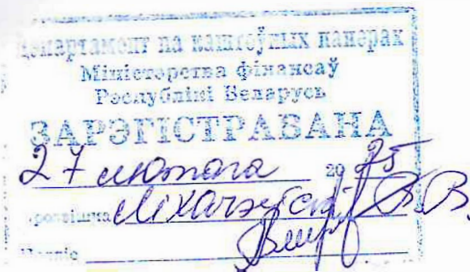 Дэпартамент па каштоўных паперах
Міністэрства фінансаў
Рэспублікі Беларусь
ЗАРЭГІСТРАВАНА
27 лютага 2025
прозвішча
Подпіс